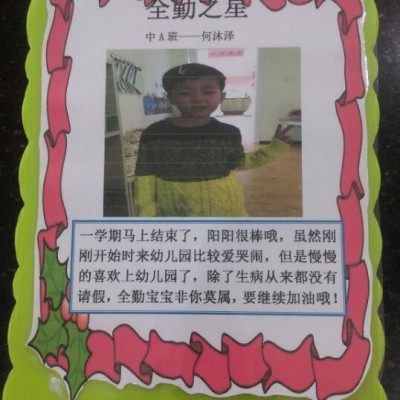 全勤之星
中A班——何沐泽
一学期马上结束了，阳阳很棒哦，虽然刚
刚开始时来幼儿园比较爱哭闹，但是慢慢
的喜欢上幼儿园了，除了生病从来都没有
请假，全勤宝宝非你莫属，要继续加油哦！